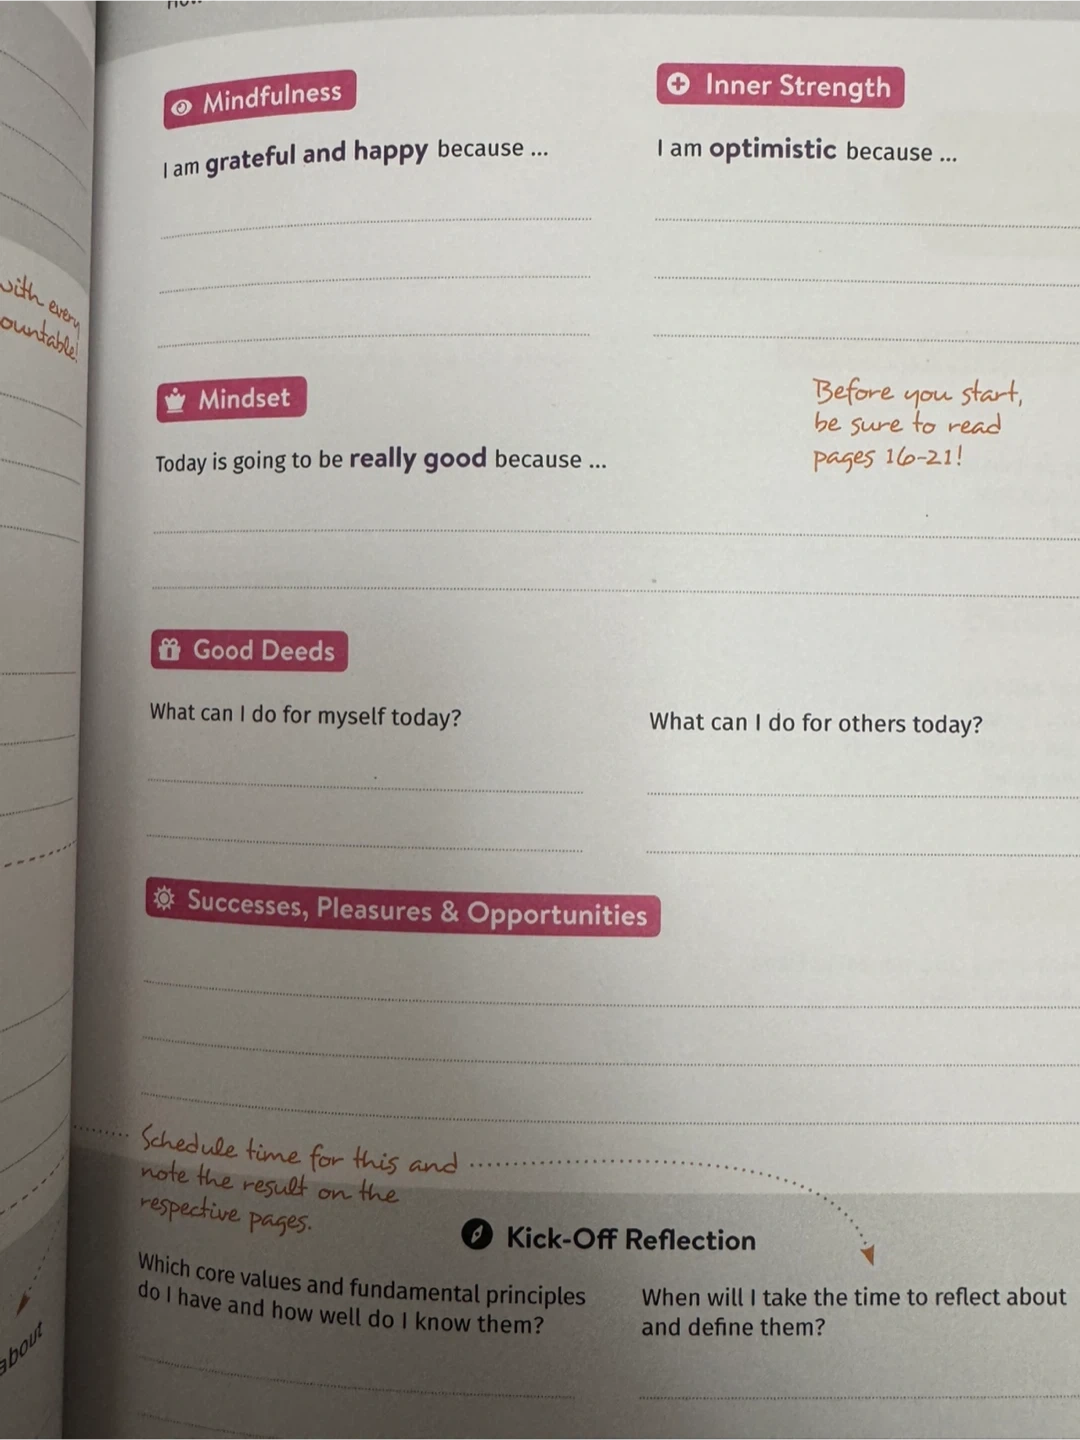 with every
ountable!
about
Mindfulness
I am grateful and happy because ...
Inner Strength
I am optimistic because ...
Mindset
Today is going to be really good because ...
Before you start,
be sure to read
pages 16-21!
Good Deeds
What can I do for myself today?
What can I do for others today?
Successes, Pleasures & Opportunities
Schedule time for this and
note the result on the
respective pages.
Kick-Off Reflection
Which core values and fundamental principles
do I have and how well do I know them?
When will I take the time to reflect about
and define them?